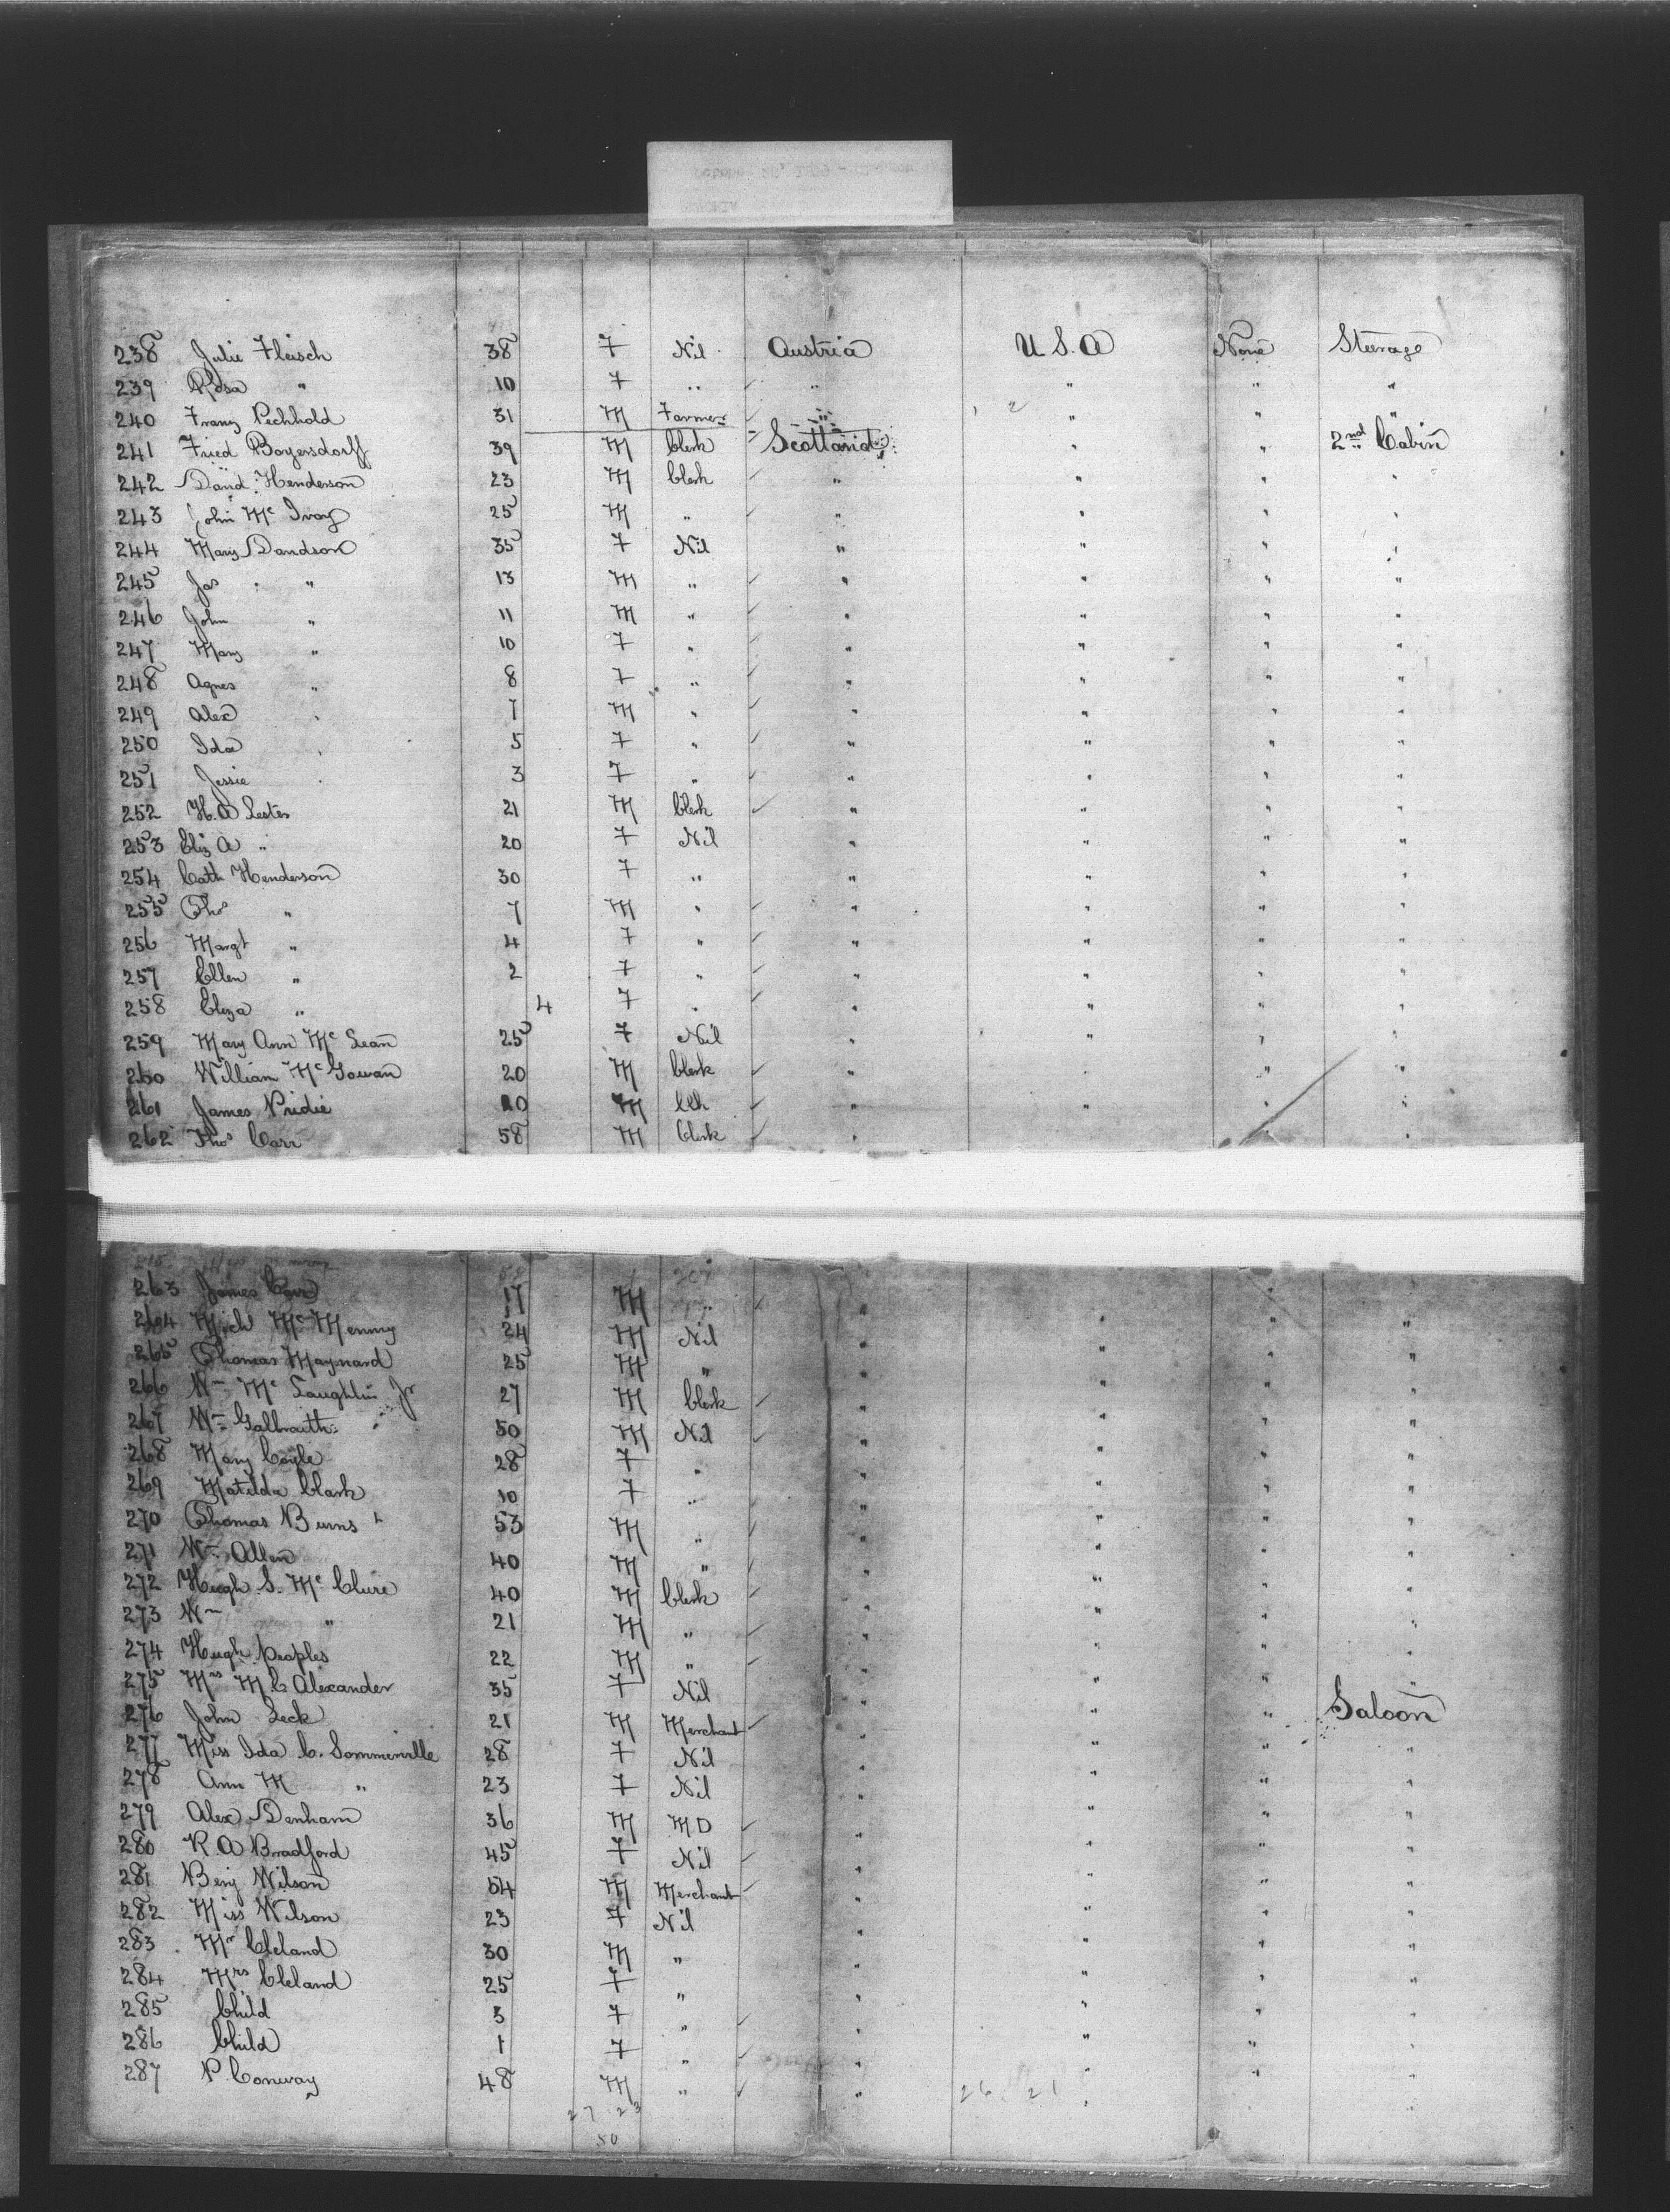 238 Julie Fleisch 38 F Nil Austria U.S.A None Steerage
239 Rosa " 10 F " " " " "
240 Franz Pechhold 31 M Farmer " " " "
241 Fried Boyersdorff 39 M Clerk Scotland " " 2nd Cabin
242 David Henderson 23 M Clerk " " " "
243 John Mc Ivoy 25 M " " " " "
244 Mary Davidson 35 F Nil " " " "
245 Jas " 13 M " " " " "
246 John " 11 M " " " " "
247 Mary " 10 F " " " " "
248 Agnes " 8 F " " " " "
249 Alex " 7 M " " " " "
250 Ida " 5 F " " " " "
251 Jessie " 3 F " " " " "
252 H. A Lester 21 M Clerk " " " "
253 Eliz A " 20 F Nil " " " "
254 Cath Henderson 30 F " " " " "
255 Thos " 7 M " " " " "
256 Margt " 4 F " " " " "
257 Ellen " 2 F " " " " "
258 Eliza " 4 F " " " " "
259 Mary Ann Mc Lean 25 F Nil " " " "
260 William Mc Gowan 20 M Clerk " " " "
261 James Pridie 20 M Clk " " " "
262 Thos Carr 58 M Clerk " "
263 James Carr 17 M " " " " "
264 Michl Mc Menmy 24 M Nil " " " "
265 Thomas Maynard 25 M " " " " "
266 Wm Mc Laughlin Jr 27 M Clerk " " " "
267 Wm Galbraith 50 M Nil " " " "
268 Mary Coyle 28 F " " " " "
269 Matilda Clark 10 F " " " " "
270 Thomas Burns 53 M " " " " "
271 Wm Allen 40 M " " " " "
272 Hugh S. Mc Clure 40 M Clerk " " " "
273 Wm " 21 M " " " " "
274 Hugh Peoples 22 M " " " " "
275 Mrs M C Alexander 35 F Nil " " " "
276 John Leck 21 M Merchant " " " Saloon
277 Miss Ida C. Sommerville 28 F Nil " " " "
278 Ann M " 23 F Nil " " " "
279 Alex Denham 36 M M D " " " "
280 R. A Bradford 45 F Nil " " " "
281 Benj Wilson 54 M Merchant " " " "
282 Miss Wilson 23 F Nil " " " "
283 Mr Cleland 30 M " " " " "
284 Mrs Cleland 25 F " " " " "
285 Child 3 F " " " " "
286 Child 1 F " " " " "
287 P. Conway 48 M " " " " "
26 21
27 23
50